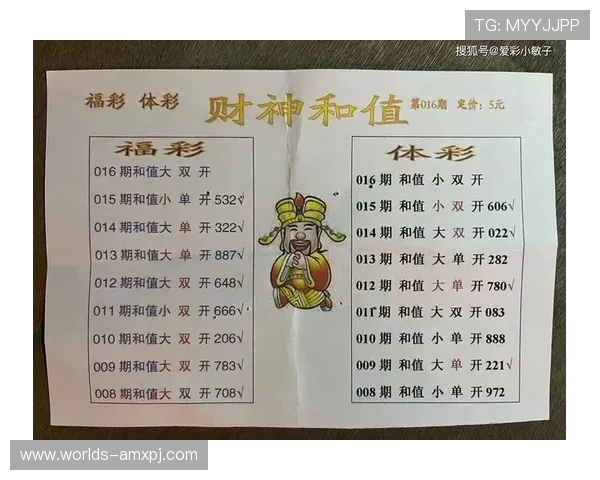 TG: MYYJJPP
搜狐号@爱彩小敏子
福彩 体彩 财神和值 第016期 定价：5元
福彩
016 期和值大 双 开
015 期和值小 单 开 532√
014 期和值大 单 开 322√
013 期和值大 单 开 887√
012 期和值大 双 开 648√
011 期和值小 双 开 666√
010 期和值大 双 开 206√
009 期和值大 双 开 783√
008 期和值大 双 开 708√
体彩
016 期 和值 小 双 开
015 期 和值 小 双 开 606√
014 期 和值 大 双 开 022√
013 期 和值 大 单 开 282
012 期 和值 大 单 开 780√
011 期 和值 大 双 开 083
010 期 和值 小 单 开 888
009 期 和值 大 单 开 221√
008 期 和值 小 单 开 972
www-worlds-amxpj.com